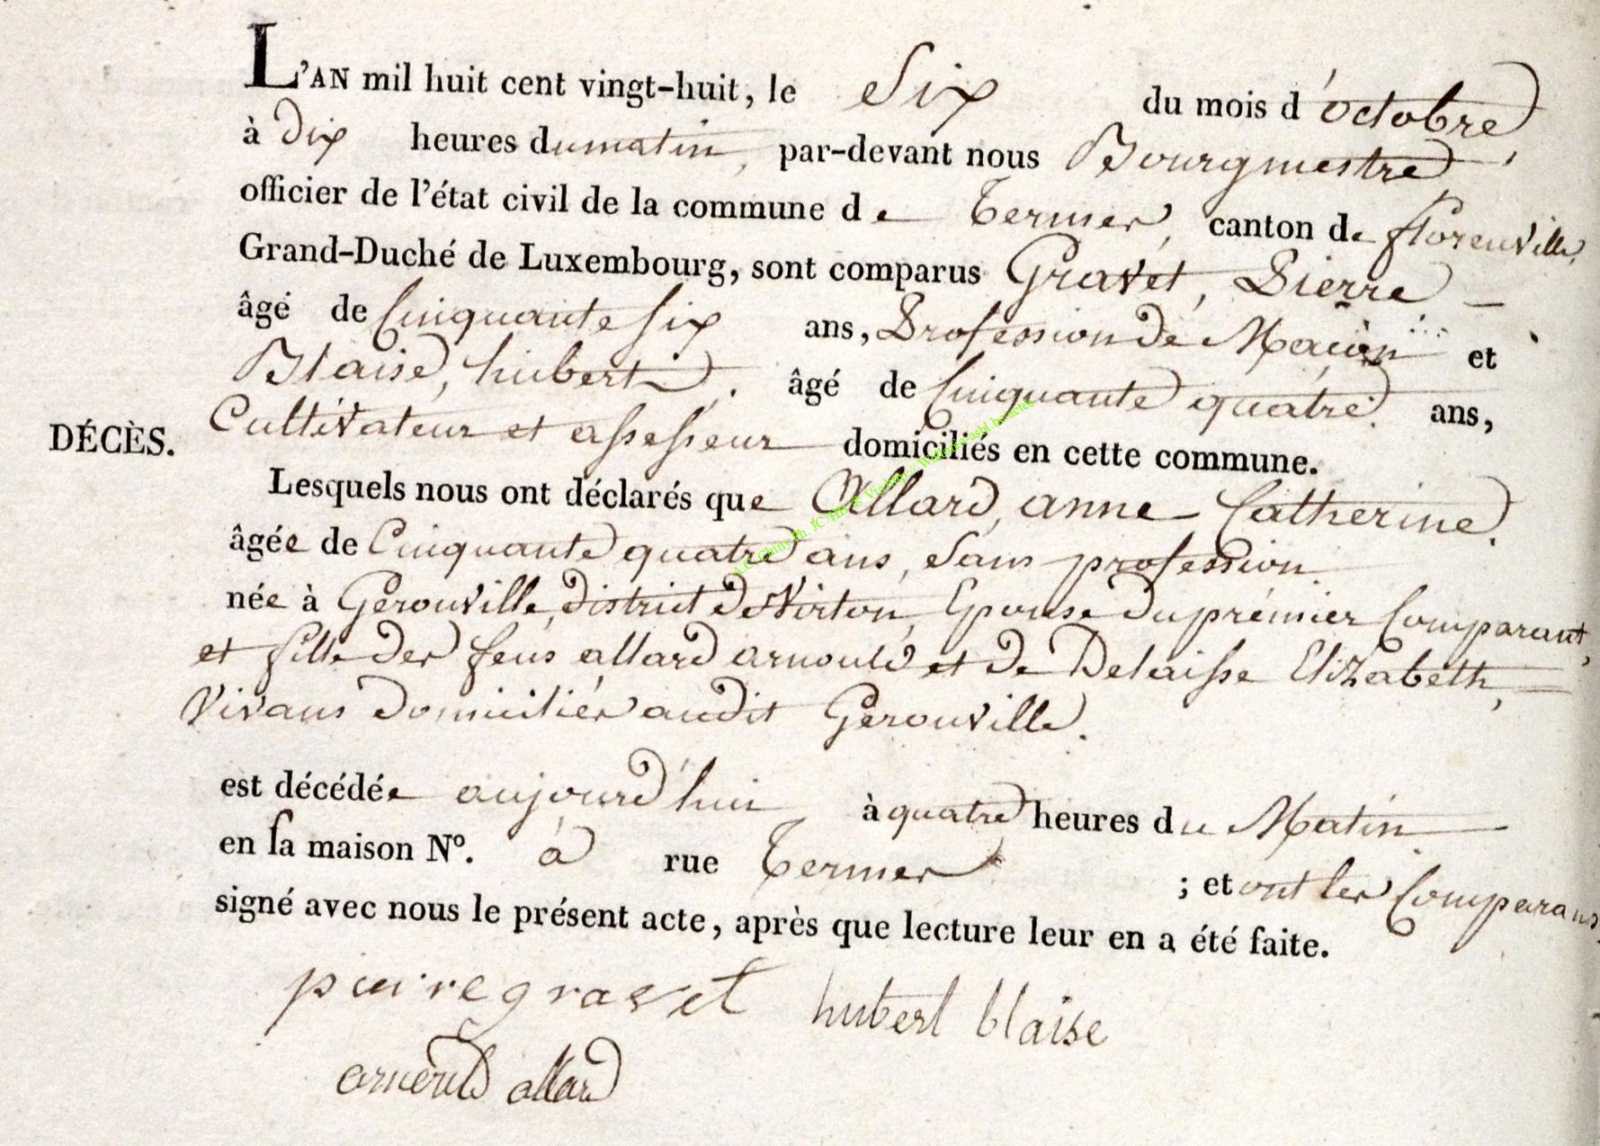 L'AN mil huit cent vingt-huit, le Six du mois d'octobre,
à dix heures du matin, par-devant nous Bourgmestre,
officier de l'état civil de la commune de Termes, canton de florenville,
Grand-Duché de Luxembourg, sont comparus Gravet, Pierre
âgé de Cinquante six ans, Profession de Maçon et
Blaise, hubert, âgé de Cinquante quatre ans,
Cultivateur et assesseur domiciliés en cette commune.
DÉCÈS.
Lesquels nous ont déclarés que Allard, anne Catherine.
âgée de Cinquante quatre ans, Sans profession.
née à Gérouville, district de Virton, Epouse du prémier Comparant,
et fille des feus allard arnould et de Delaisse Elizabeth,
Vivans domiciliés audit Gerouville.
est décédée aujourd'hui à quatre heures du Matin
en sa maison N°. à rue Termes ; et ont les Comparans
signé avec nous le présent acte, après que lecture leur en a été faite.
pierre gravet hubert blaise
arnould allard